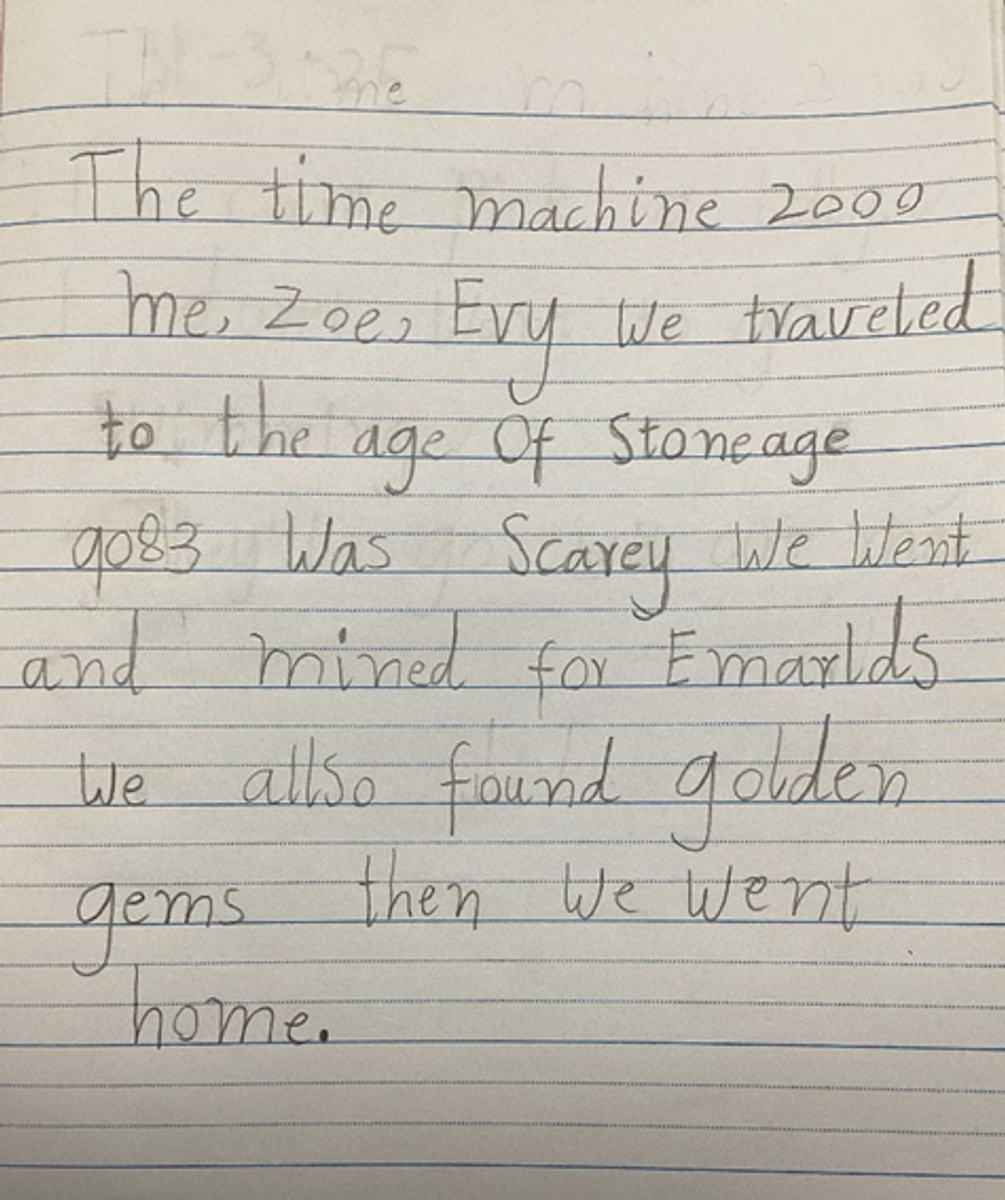 The time machine 2000
me, Zoe, Evy We traveled
to the age Of Stoneage
9083 Was Scarey We Went
and mined for Emarlds
We allso found golden
gems then We Went
home.